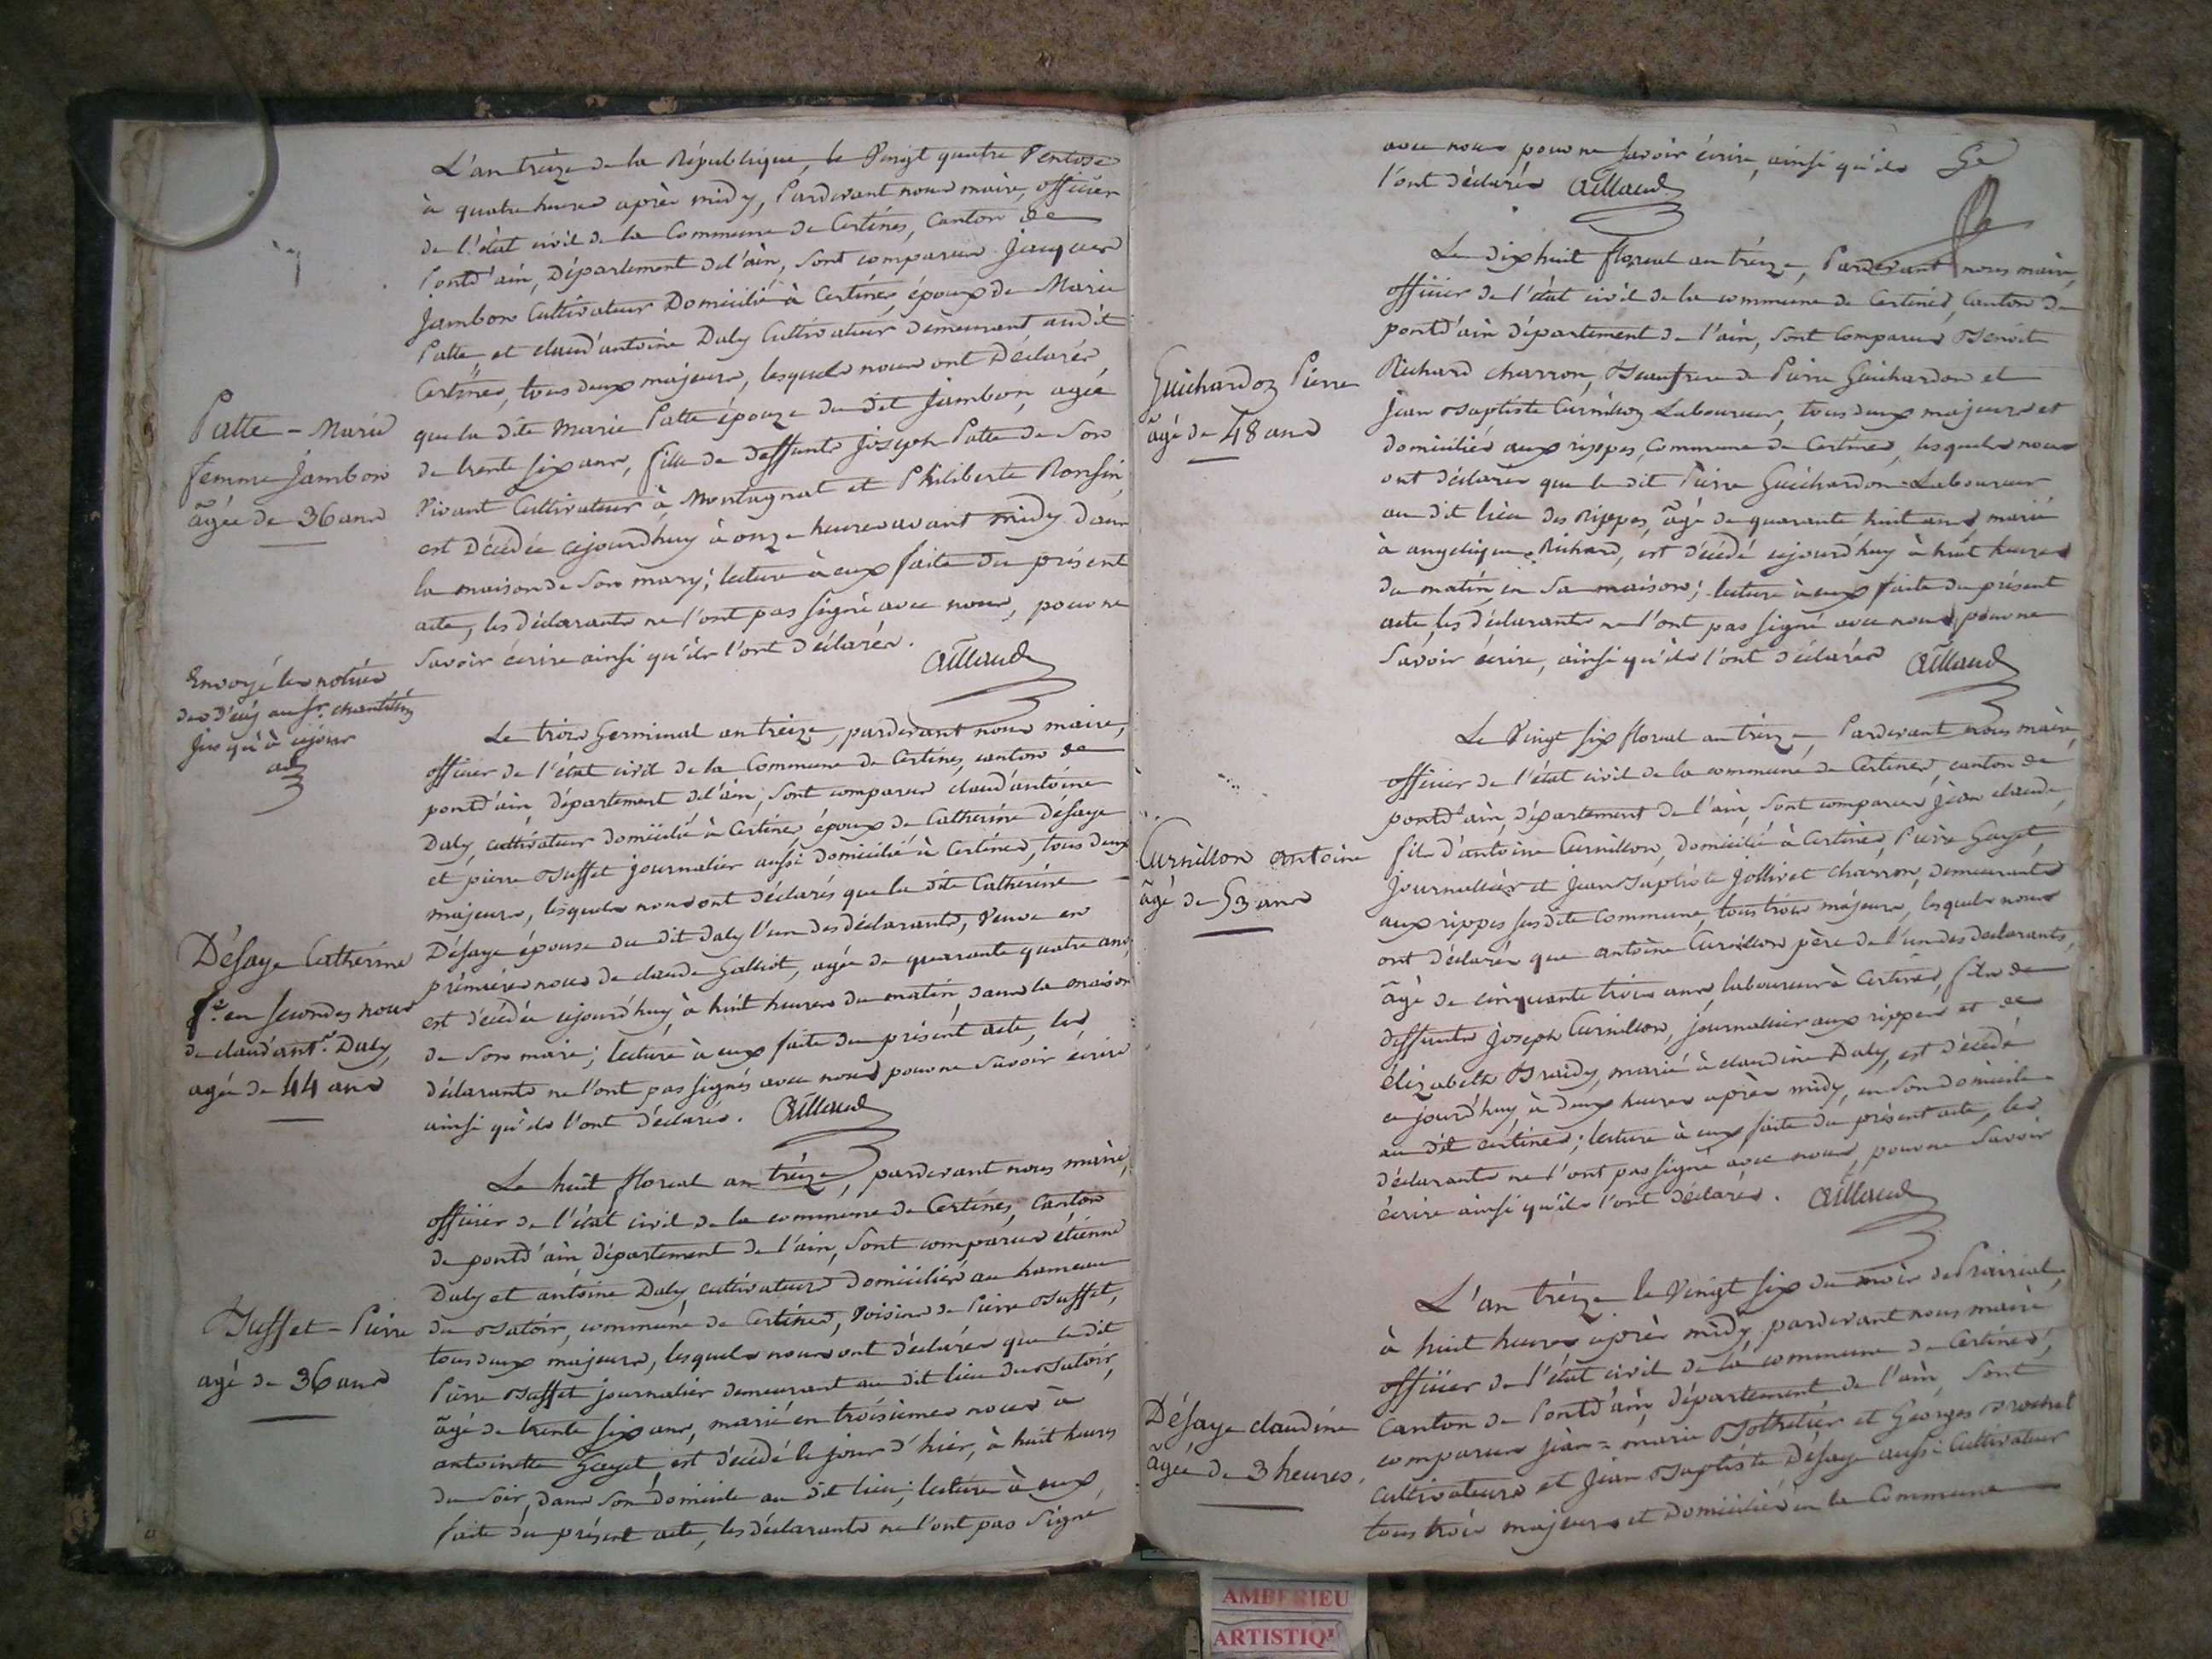 L'an treize de la République, le Vingt quatre Ventose
à quatre heures après midy, Pardevant nous maire, officier
de l'état civil de la Commune de Certines, Canton de
Pontd'ain, Département del'ain, Sont comparus Jacques
Jambon Cultivateur Domicilié à Certines, époux de Marie
Patte et claud'antoine Daly Cultivateur demeurant audit
Certines, tous deux majeurs, lesquels nous ont Déclarés,
que la dite Marie Patte épouze du dit Jambon, agée
de trente six ans, fille de deffunts Joseph Patte de Son
Vivant Cultivateur à Montagnat et Philiberte Ronfin,
est Décédée cejourd'huy à onze heures avant midy dans
la maison de Son mary; lecture à eux faite du présent
acte, les déclarants ne l'ont pas Signé avec nous, pour ne
Savoir écrire ainsi qu'ils l'ont Déclarés.
Aillaud
Patte - Marie
femme Jambon
âgée de 36 ans
Envoyé les notices
des décès au Sr.
jusqu'à cejour
Le trois Germinal an treize, pardevant nous maire,
officier de l'état civil de la Commune de Certines, canton de
pontd'ain, département del'ain, Sont comparus claud'antoine
Daly, cultivateur domicilié à Certines, époux de Catherine Désaye
et pierre Buffet journalier aussi domicilié à Certines, tous deux
majeurs, lesquels nous ont déclarés que la dite Catherine
Désaye épouse du dit Daly l'un des déclarants, Veuve en
prémières noces de claude Galliot, agée de quarante quatre ans,
est décédée cejourd'huy, à huit heures du matin dans la maison
de Son mari; lecture à eux faite du présent acte, les
déclarants ne l'ont pas signés avec nous pour ne Savoir écrire
ainsi qu'ils l'ont déclarés. Aillaud
Désaye Catherine
fe. en Secondes noces
de claud'ante. Daly,
agée de 44 ans
Le huit floreal an treize, pardevant nous maire,
officier de l'état civil de la commune de Certines, Canton
de pontd'ain, département de l'ain, Sont comparus étienne
Daly et antoine Daly, cultivateurs domiciliés au hameau
du Batoir, commune de Certines, Voisins de Pierre Buffet,
tous deux majeurs, lesquels nous ont déclarés que le dit
Pierre Buffet journalier demeurant au dit lieu du Batoir,
âgé de trente six ans, marié en troisiemes noces à
antoinette Gayet, est décédé le jour d'hier, à huit heures
du Soir, dans Son domicile au dit lieu; lecture à eux,
faite du présent acte, les déclarants ne l'ont pas Signé
Buffet - Pierre
agé de 36 ans
avec nous pour ne Savoir écrire, ainsi qu'ils
l'ont déclarés Aillaud
Le dix huit floreal an treize, Pardevant nous maire,
officier de l'état civil de la commune de Certines, Canton de
pontd'ain département de l'ain, Sont Comparus Benoit
Richard charron, Beaufrere de Pierre Guichardon et
Jean Baptiste Curnillon Laboureur, tous deux majeurs et
domiciliés aux rippes, Commune de Certines, lesquels nous
ont déclarés que le dit Pierre Guichardon Laboureur
au dit lieu des Rippes, âgé de quarante huit ans marié
à angelique Richard, est décédé cejourd'huy à huit heures
du matin en Sa maison; lecture à eux faite du présent
acte, les déclarants ne l'ont pas Signé avec nous, pour ne
Savoir écrire, ainsi qu'ils l'ont déclarés Aillaud
Guichardon Pierre
âgé de 48 ans
Le Vingt Six floreal an treize, Pardevant nous maire,
officier de l'état civil de la commune de Certines, canton de
pontd'ain, département de l'ain, Sont comparus jean claude,
fils d'antoine Curnillon, domicilié à Certines, Pierre Gayet,
journallier et Jean Baptiste Jollivet charron, demeurants
aux rippes Susdite Commune, tous trois majeurs, lesquels nous
ont déclarés que antoine Curnillon père de l'un des déclarants,
âgé de cinquante trois ans, laboureur à Certines, fils de
deffunts Joseph Curnillon, journallier aux rippes et de
Elizabeth Braidy, marié à claudine Daly, est décédé
cejourd'huy, à deux heures après midy, en Son domicile
au dit certines; lecture à eux faite du présent acte, les
déclarants ne l'ont pas Signé avec nous, pour ne Savoir
écrire ainsi qu'ils l'ont déclarés. Aillaud
Curnillon antoine
âgé de 53 ans
L'an treize le Vingt Six du mois de Prairial,
à huit heures après midy, pardevant nous maire
officier de l'état civil de la commune de Certines,
Canton de Pontd'ain, département de l'ain, Sont
comparus jean=marie Botheliér et Georges Brochet
cultivateurs et Jean Baptiste Désaye aussi Cultivateur
tous trois majeurs et Domiciliés en la Commune
Désaye claudine
âgée de 3 heures.
AMBERIEU
ARTISTIQ